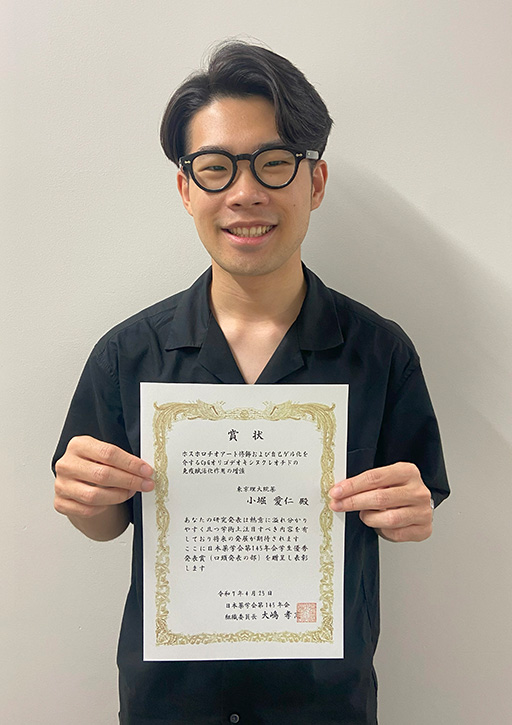 賞状
ホスホロチオアート修飾および自己ゲル化を
介するCpGオリゴデオキシヌクレオチドの
免疫賦活化作用の増強
東京理大院薬
小堀 愛仁 殿
あなたの研究発表は熱意に溢れ分かり
やすく且つ学術上注目すべき内容を有
しており将来の発展が期待されます
ここに日本薬学会第145年会学生優秀
発表賞（口頭発表の部）を贈呈し表彰
します
令和7年4月25日
日本薬学会第145年会
組織委員長 大嶋 孝